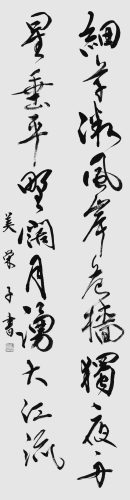 細草微風岸危檣獨夜舟
星垂平野闊月湧大江流
美榮子書